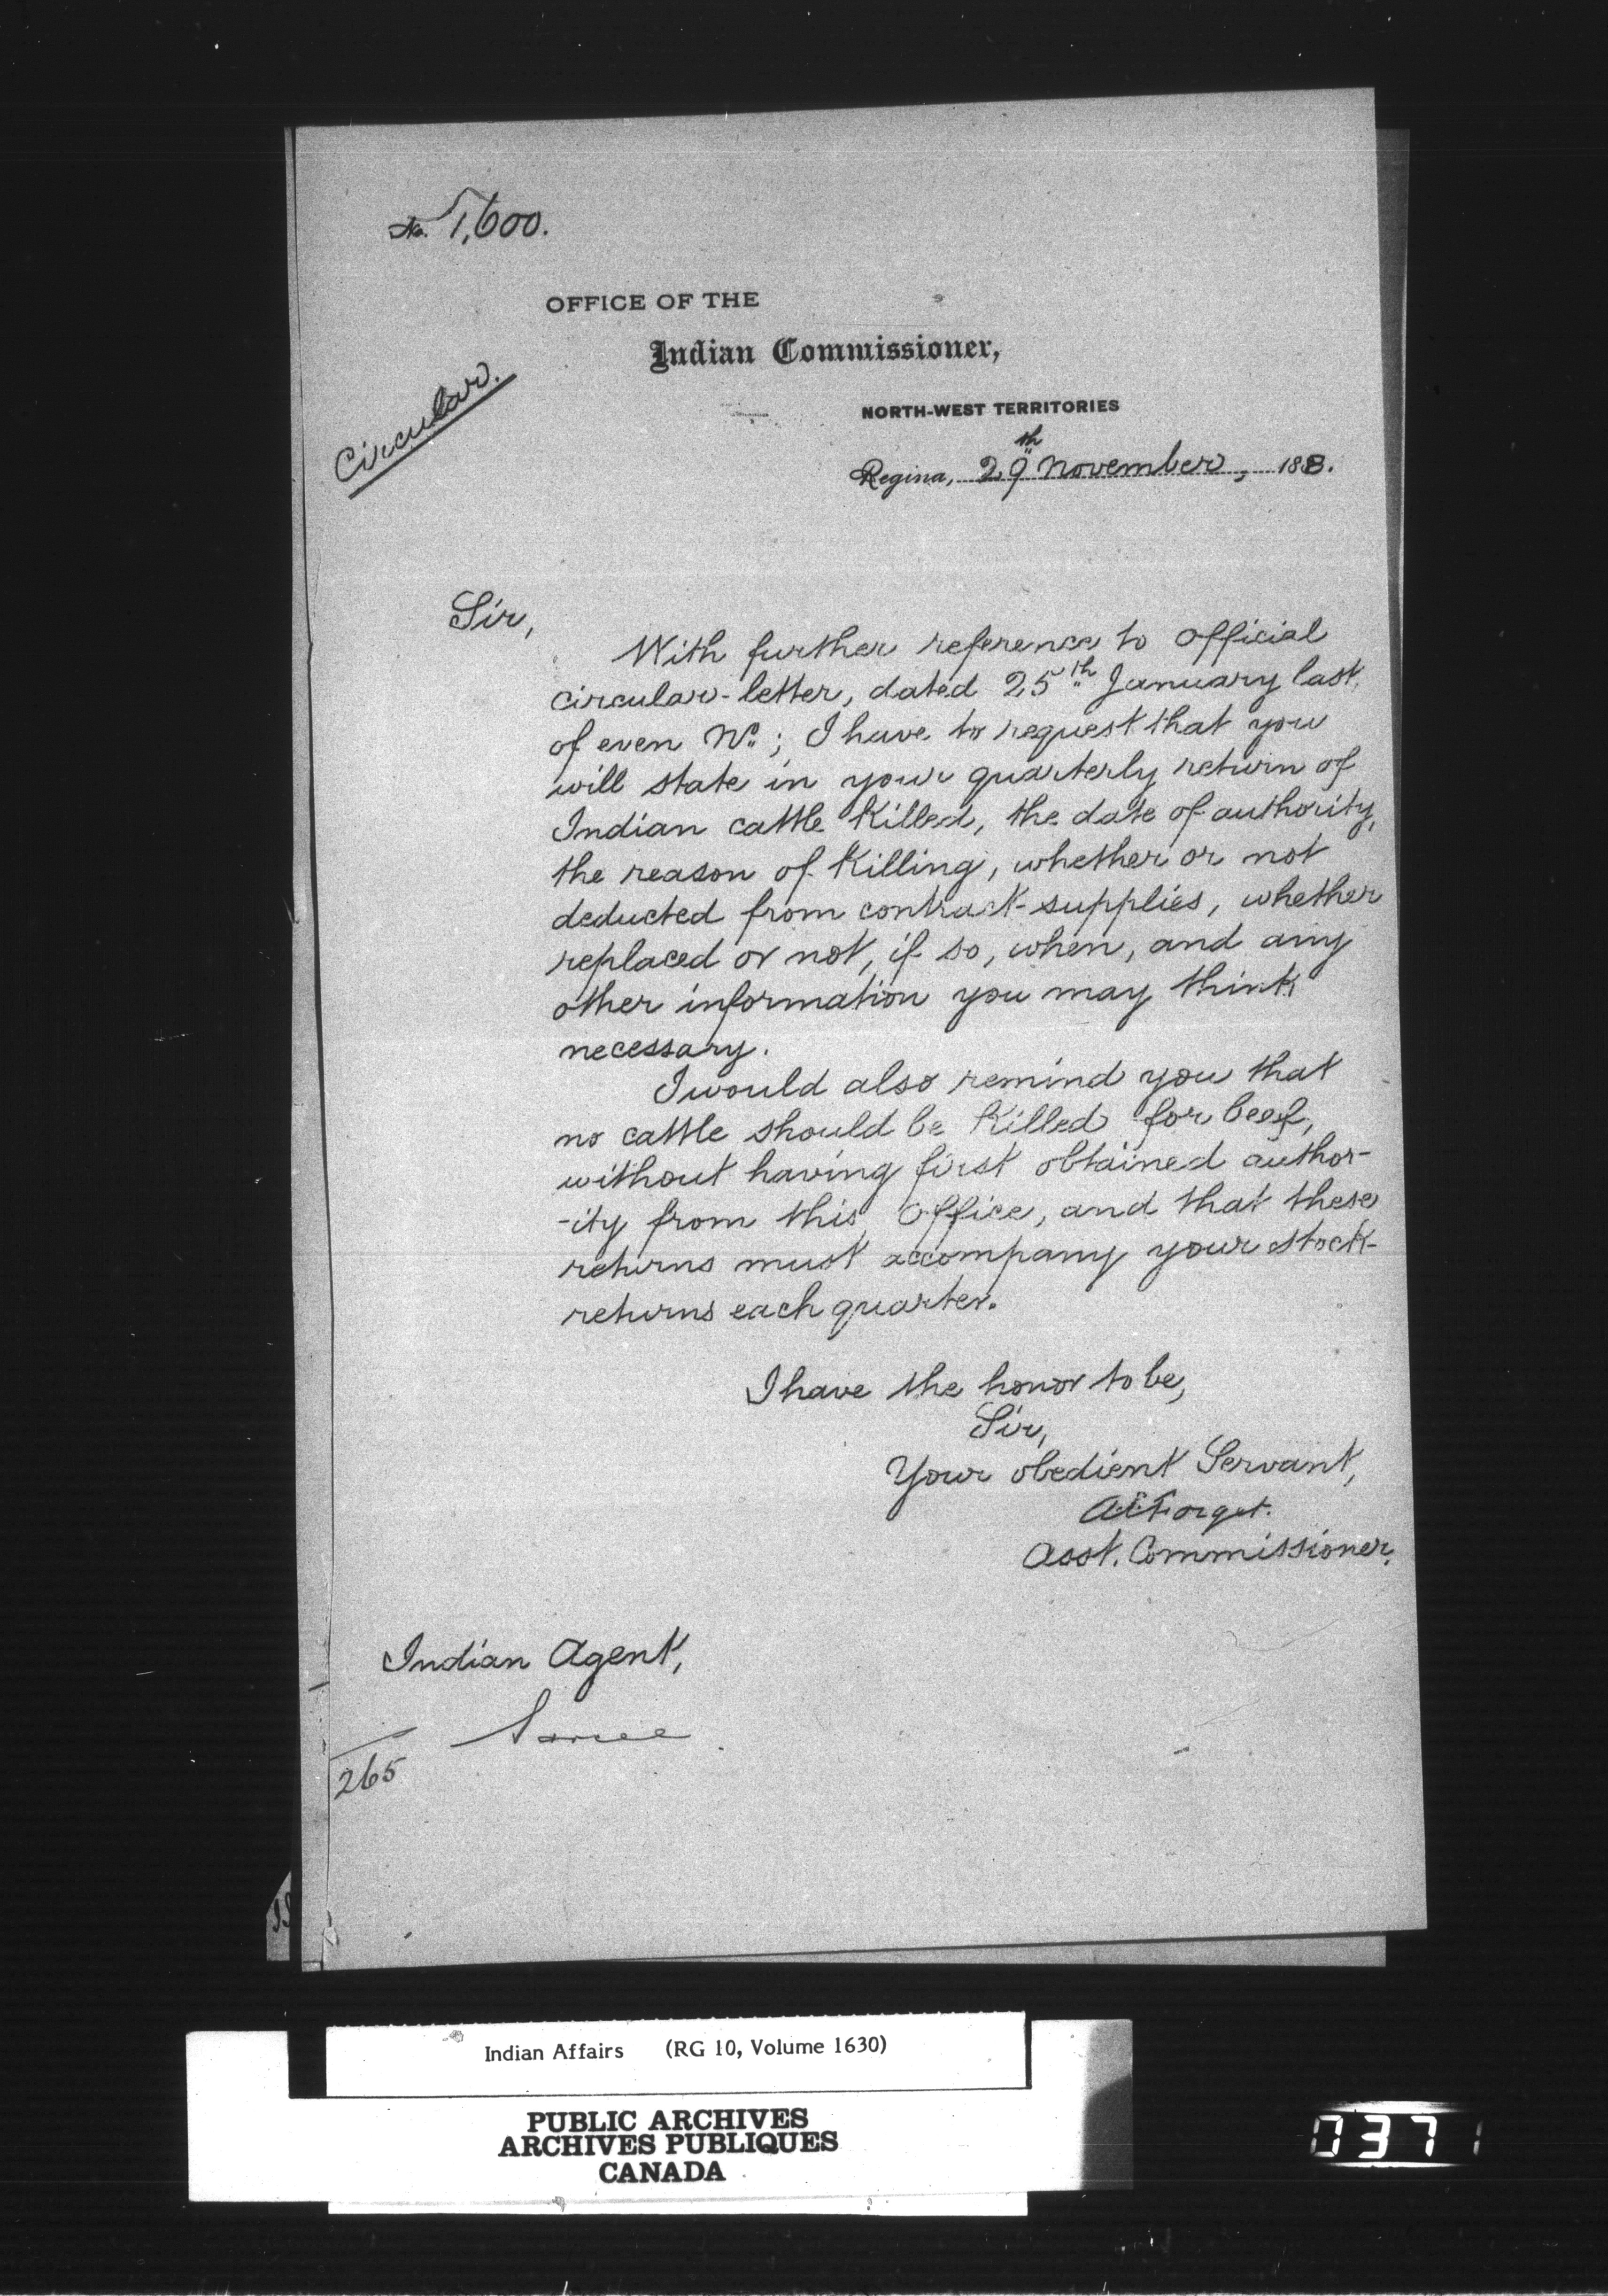 No. 1,600.
OFFICE OF THE
Indian Commissioner,
Circular.
NORTH-WEST TERRITORIES
Regina, 29th November, 1888.
Sir,
With further reference to Official
circular-letter, dated 25th January last,
of even No.; I have to request that you
will state in your quarterly return of
Indian cattle killed, the date of authority,
the reason of killing, whether or not
deducted from contract-supplies, whether
replaced or not, if so, when, and any
other information you may think
necessary.
I would also remind you that
no cattle should be killed for beef,
without having first obtained author-
-ity from this Office, and that these
returns must accompany your stock-
returns each quarter.
I have the honor to be,
Sir,
Your obedient Servant,
A.E. Forget.
Asst. Commissioner.
Indian Agent,
Sarcee
265
Indian Affairs (RG 10, Volume 1630)
PUBLIC ARCHIVES
ARCHIVES PUBLIQUES
CANADA
0371